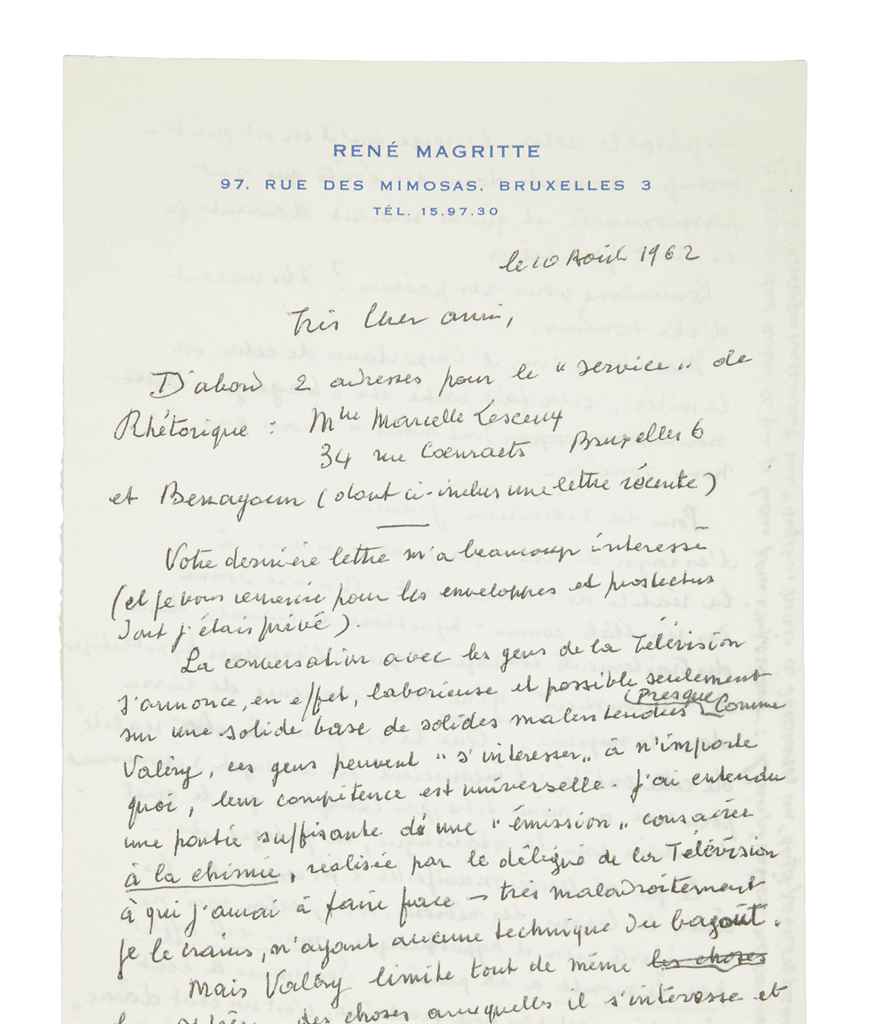 RENÉ MAGRITTE
97, RUE DES MIMOSAS, BRUXELLES 3
TÉL. 15.97.30
le 10 Août 1962
Très Cher ami,
D'abord 2 adresses pour le "service" de
Rhétorique : Mlle Marcelle Lesceux
34 rue Coenraets Bruxelles 6
et Benayoun (dont ci-inclus une lettre récente)
Votre dernière lettre m'a beaucoup intéressé
(et je vous remercie pour les enveloppes et prospectus
dont j'étais privé).
La conversation avec les gens de la Télévision
s'annonce, en effet, laborieuse et possible seulement
(presque)
sur une solide base de solides malentendus Comme
Valéry, ces gens peuvent "s'intéresser" à n'importe
quoi, leur compétence est universelle. J'ai entendu
une partie suffisante de une "émission" consacrée
à la chimie, réalisée par le délégué de la Télévision
à qui j'aurai à faire face – très maladroitement
je le crains, n'ayant aucune technique du bagoût.
Mais Valéry limite tout de même les choses
des choses auxquelles il s'intéresse et